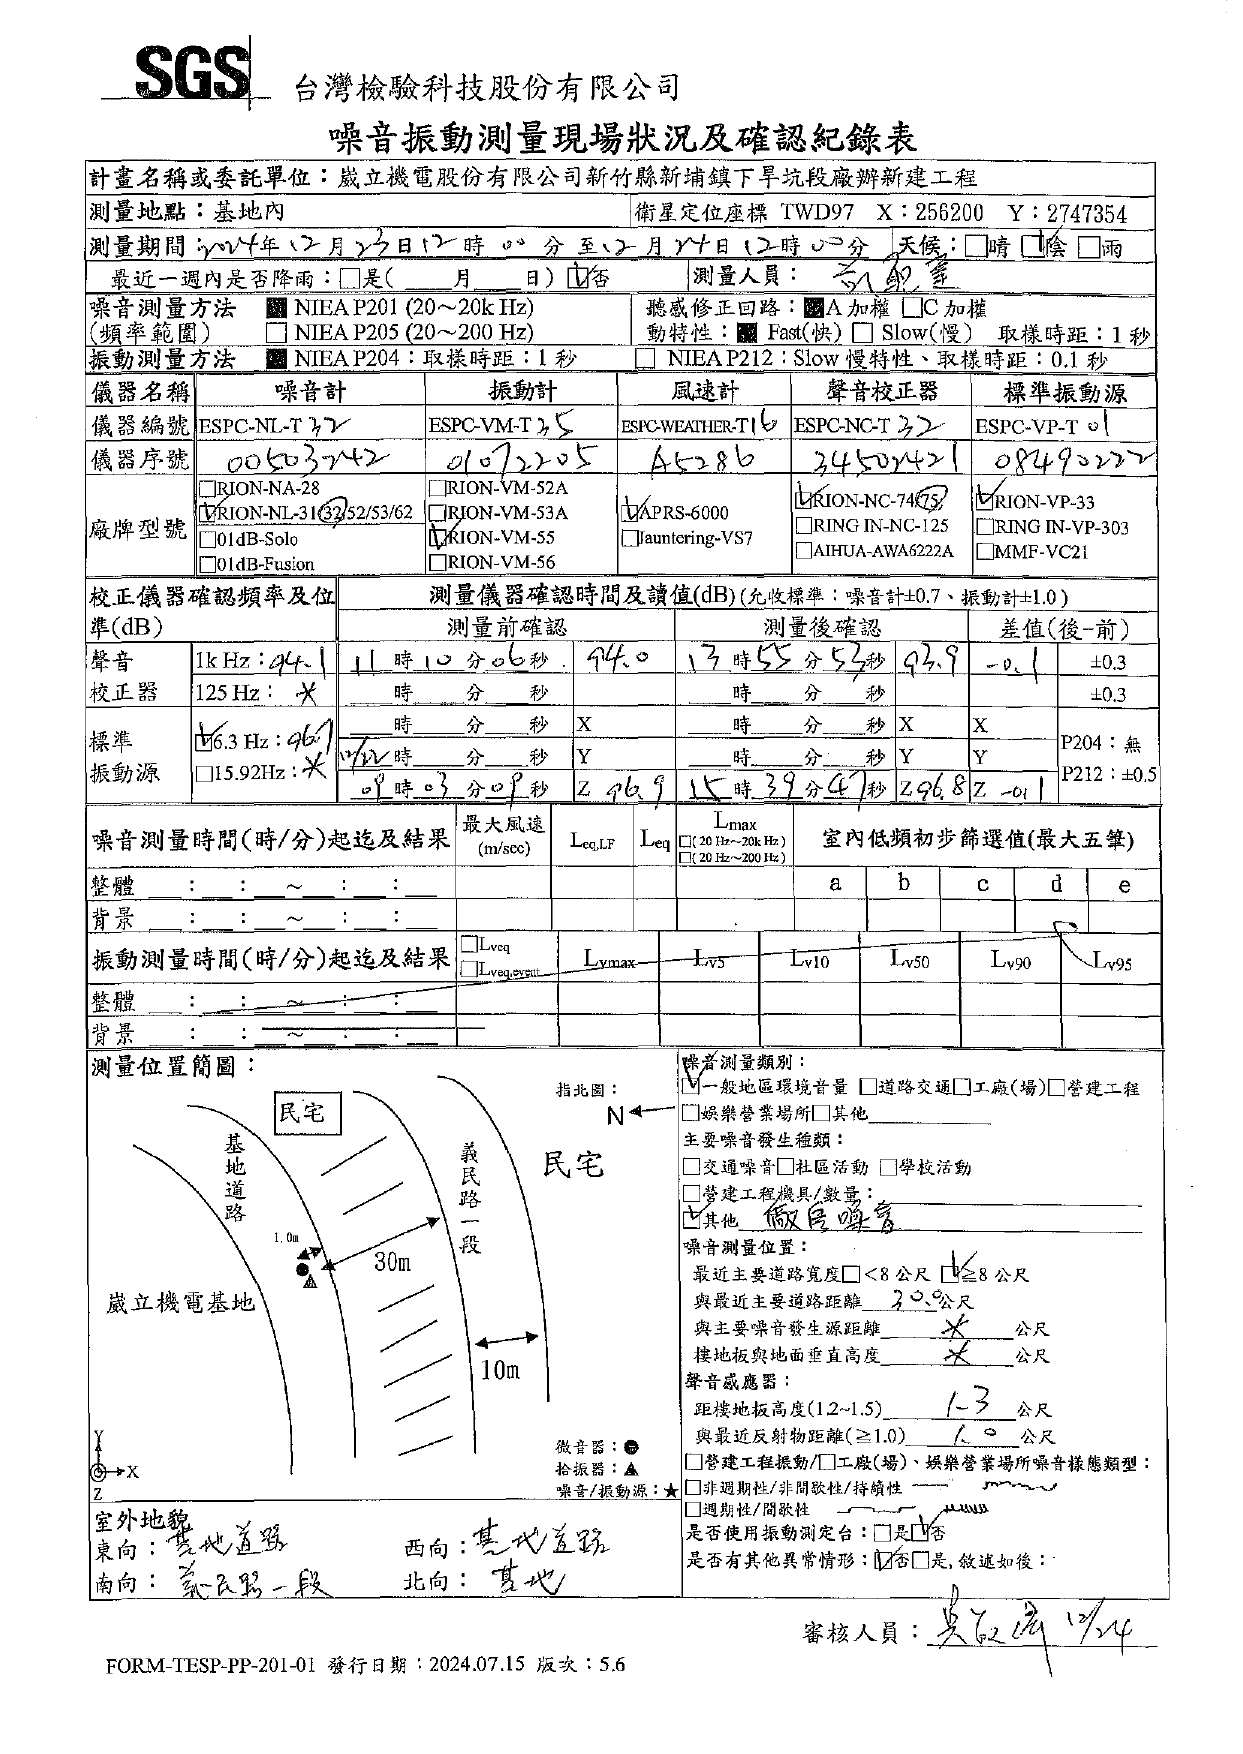 SGS 台灣檢驗科技股份有限公司
噪音振動測量現場狀況及確認紀錄表
計畫名稱或委託單位：崴立機電股份有限公司新竹縣新埔鎮下旱坑段廠辦新建工程
測量地點：基地內 衛星定位座標 TWD97 X：256200 Y：2747354
測量期間：2024年12月23日12時00分至12月24日12時00分 天候：□晴 ☑陰 □雨
最近一週內是否降雨：□是( 月 日) ☑否 測量人員：
噪音測量方法 ■ NIEA P201 (20～20k Hz) 聽感修正回路：■A 加權 □C 加權
(頻率範圍) □ NIEA P205 (20～200 Hz) 動特性：■ Fast(快) □ Slow(慢) 取樣時距：1 秒
振動測量方法 ■ NIEA P204：取樣時距：1 秒 □ NIEA P212：Slow 慢特性、取樣時距：0.1 秒
儀器名稱 噪音計 振動計 風速計 聲音校正器 標準振動源
儀器編號 ESPC-NL-T 32 ESPC-VM-T 35 ESPC-WEATHER-T16 ESPC-NC-T 32 ESPC-VP-T 01
儀器序號 00503242 01072205 A5286 34502421 08490222
廠牌型號
□RION-NA-28 □RION-VM-52A ☑RION-NC-74/75 ☑RION-VP-33
☑RION-NL-31/32/52/53/62 □RION-VM-53A ☑APRS-6000 □RING IN-NC-125 □RING IN-VP-303
□01dB-Solo ☑RION-VM-55 □Jauntering-VS7 □AIHUA-AWA6222A □MMF-VC21
□01dB-Fusion □RION-VM-56
校正儀器確認頻率及位準(dB) 測量儀器確認時間及讀值(dB)(允收標準：噪音計±0.7、振動計±1.0)
測量前確認 測量後確認 差值(後-前)
聲音校正器 1k Hz：94.1 11時10分06秒 94.0 13時55分53秒 93.9 -0.1 ±0.3
125 Hz：* 時 分 秒 時 分 秒 ±0.3
標準振動源 ☑6.3 Hz：96.7 時 分 秒 X 時 分 秒 X X P204：無
□15.92Hz：* 12/22 時 分 秒 Y 時 分 秒 Y Y P212：±0.5
09時03分09秒 Z 96.9 15時39分47秒 Z 96.8 Z -0.1
噪音測量時間(時/分)起迄及結果 最大風速(m/sec) Leq,LF Leq Lmax □(20 Hz～20k Hz) □(20 Hz～200 Hz) 室內低頻初步篩選值(最大五筆)
整體 : : ～ : : a b c d e
背景 : : ～ : :
振動測量時間(時/分)起迄及結果 □Lveq □Lveq,event Lvmax Lv5 Lv10 Lv50 Lv90 Lv95
整體 : : ～ : :
背景 : : ～ : :
測量位置簡圖：
指北圖：
N
民宅
基地道路
義民路一段
民宅
1.0m
30m
崴立機電基地
10m
Y
X
Z
微音器：●
拾振器：▲
噪音/振動源：★
噪音測量類別：
☑一般地區環境音量 □道路交通□工廠(場)□營建工程
□娛樂營業場所□其他
主要噪音發生種類：
□交通噪音□社區活動 □學校活動
□營建工程機具/數量：
☑其他 噪音
噪音測量位置：
最近主要道路寬度□<8 公尺 ☑≧8 公尺
與最近主要道路距離 30.0公尺
與主要噪音發生源距離 * 公尺
樓地板與地面垂直高度 * 公尺
聲音感應器：
距樓地板高度(1.2~1.5) 1.3 公尺
與最近反射物距離(≧1.0) 1.0 公尺
□營建工程振動/□工廠(場)、娛樂營業場所噪音樣態類型：
□非週期性/非間歇性/持續性
□週期性/間歇性
是否使用振動測定台：□是☑否
是否有其他異常情形：☑否□是,敘述如後：
室外地貌
東向：基地道路 西向：基地道路
南向：義民路一段 北向：基地
審核人員： 12/24
FORM-TESP-PP-201-01 發行日期：2024.07.15 版次：5.6